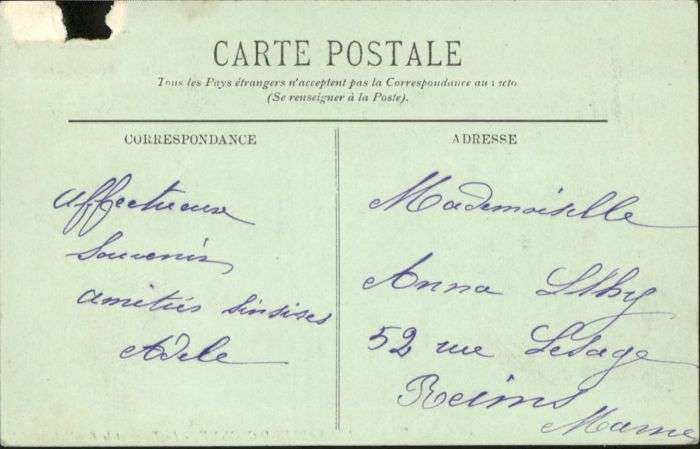 CARTE POSTALE
Tous les Pays étrangers n'acceptent pas la Correspondance au recto
(Se renseigner à la Poste).
CORRESPONDANCE
Affectueux
Souvenir
amitiés sinsises
Adèle
ADRESSE
Mademoiselle
Anna
52 rue Lesage
Reims
Marne